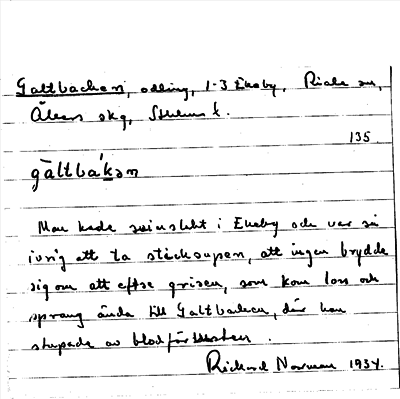 Galtbacken, odling, 1-3 Ekeby, Riala sn,
Åkers skg, Sthlms l.
135
gàltbákən
Man hade svinslakt i Ekeby och var så
ivrig att ta sticksupen, att ingen brydde
sig om att efterse grisen, som kom loss och
sprang ända till Galtbacken, där han
stupade av blodförlusten.
Richard Norman 1934.